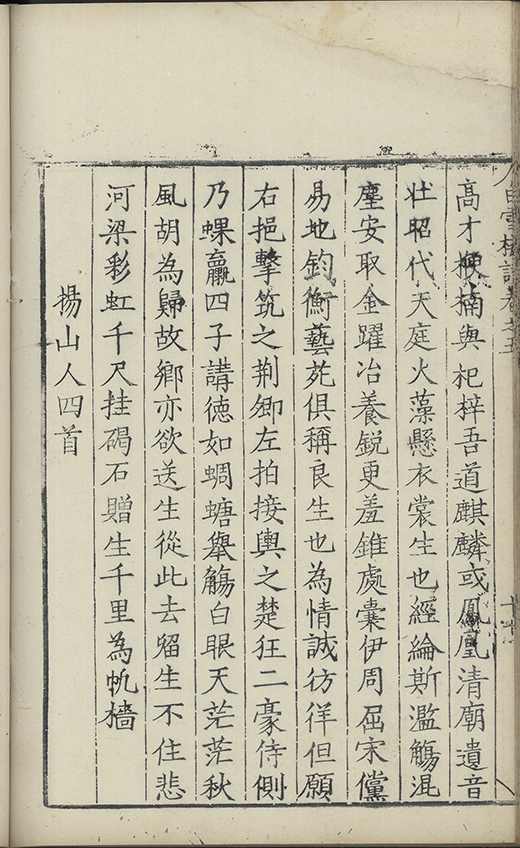 高才楩楠與杞梓吾道麒麟或鳳凰清廟遺音
壯昭代天庭火藻懸衣裳生也經綸斯濫觴混
塵安取金躍冶養銳更羞錐處囊伊周屈宋儻
易地鈞衡藝苑俱稱良生也為情誠彷徉但願
右挹擊筑之荆卿左拍接輿之楚狂二豪侍側
乃蜾蠃四子講德如蜩螗舉觴白眼天茫茫秋
風胡為歸故鄉亦欲送生從此去留生不住悲
河梁彩虹千尺挂碣石贈生千里為帆檣
楊山人四首